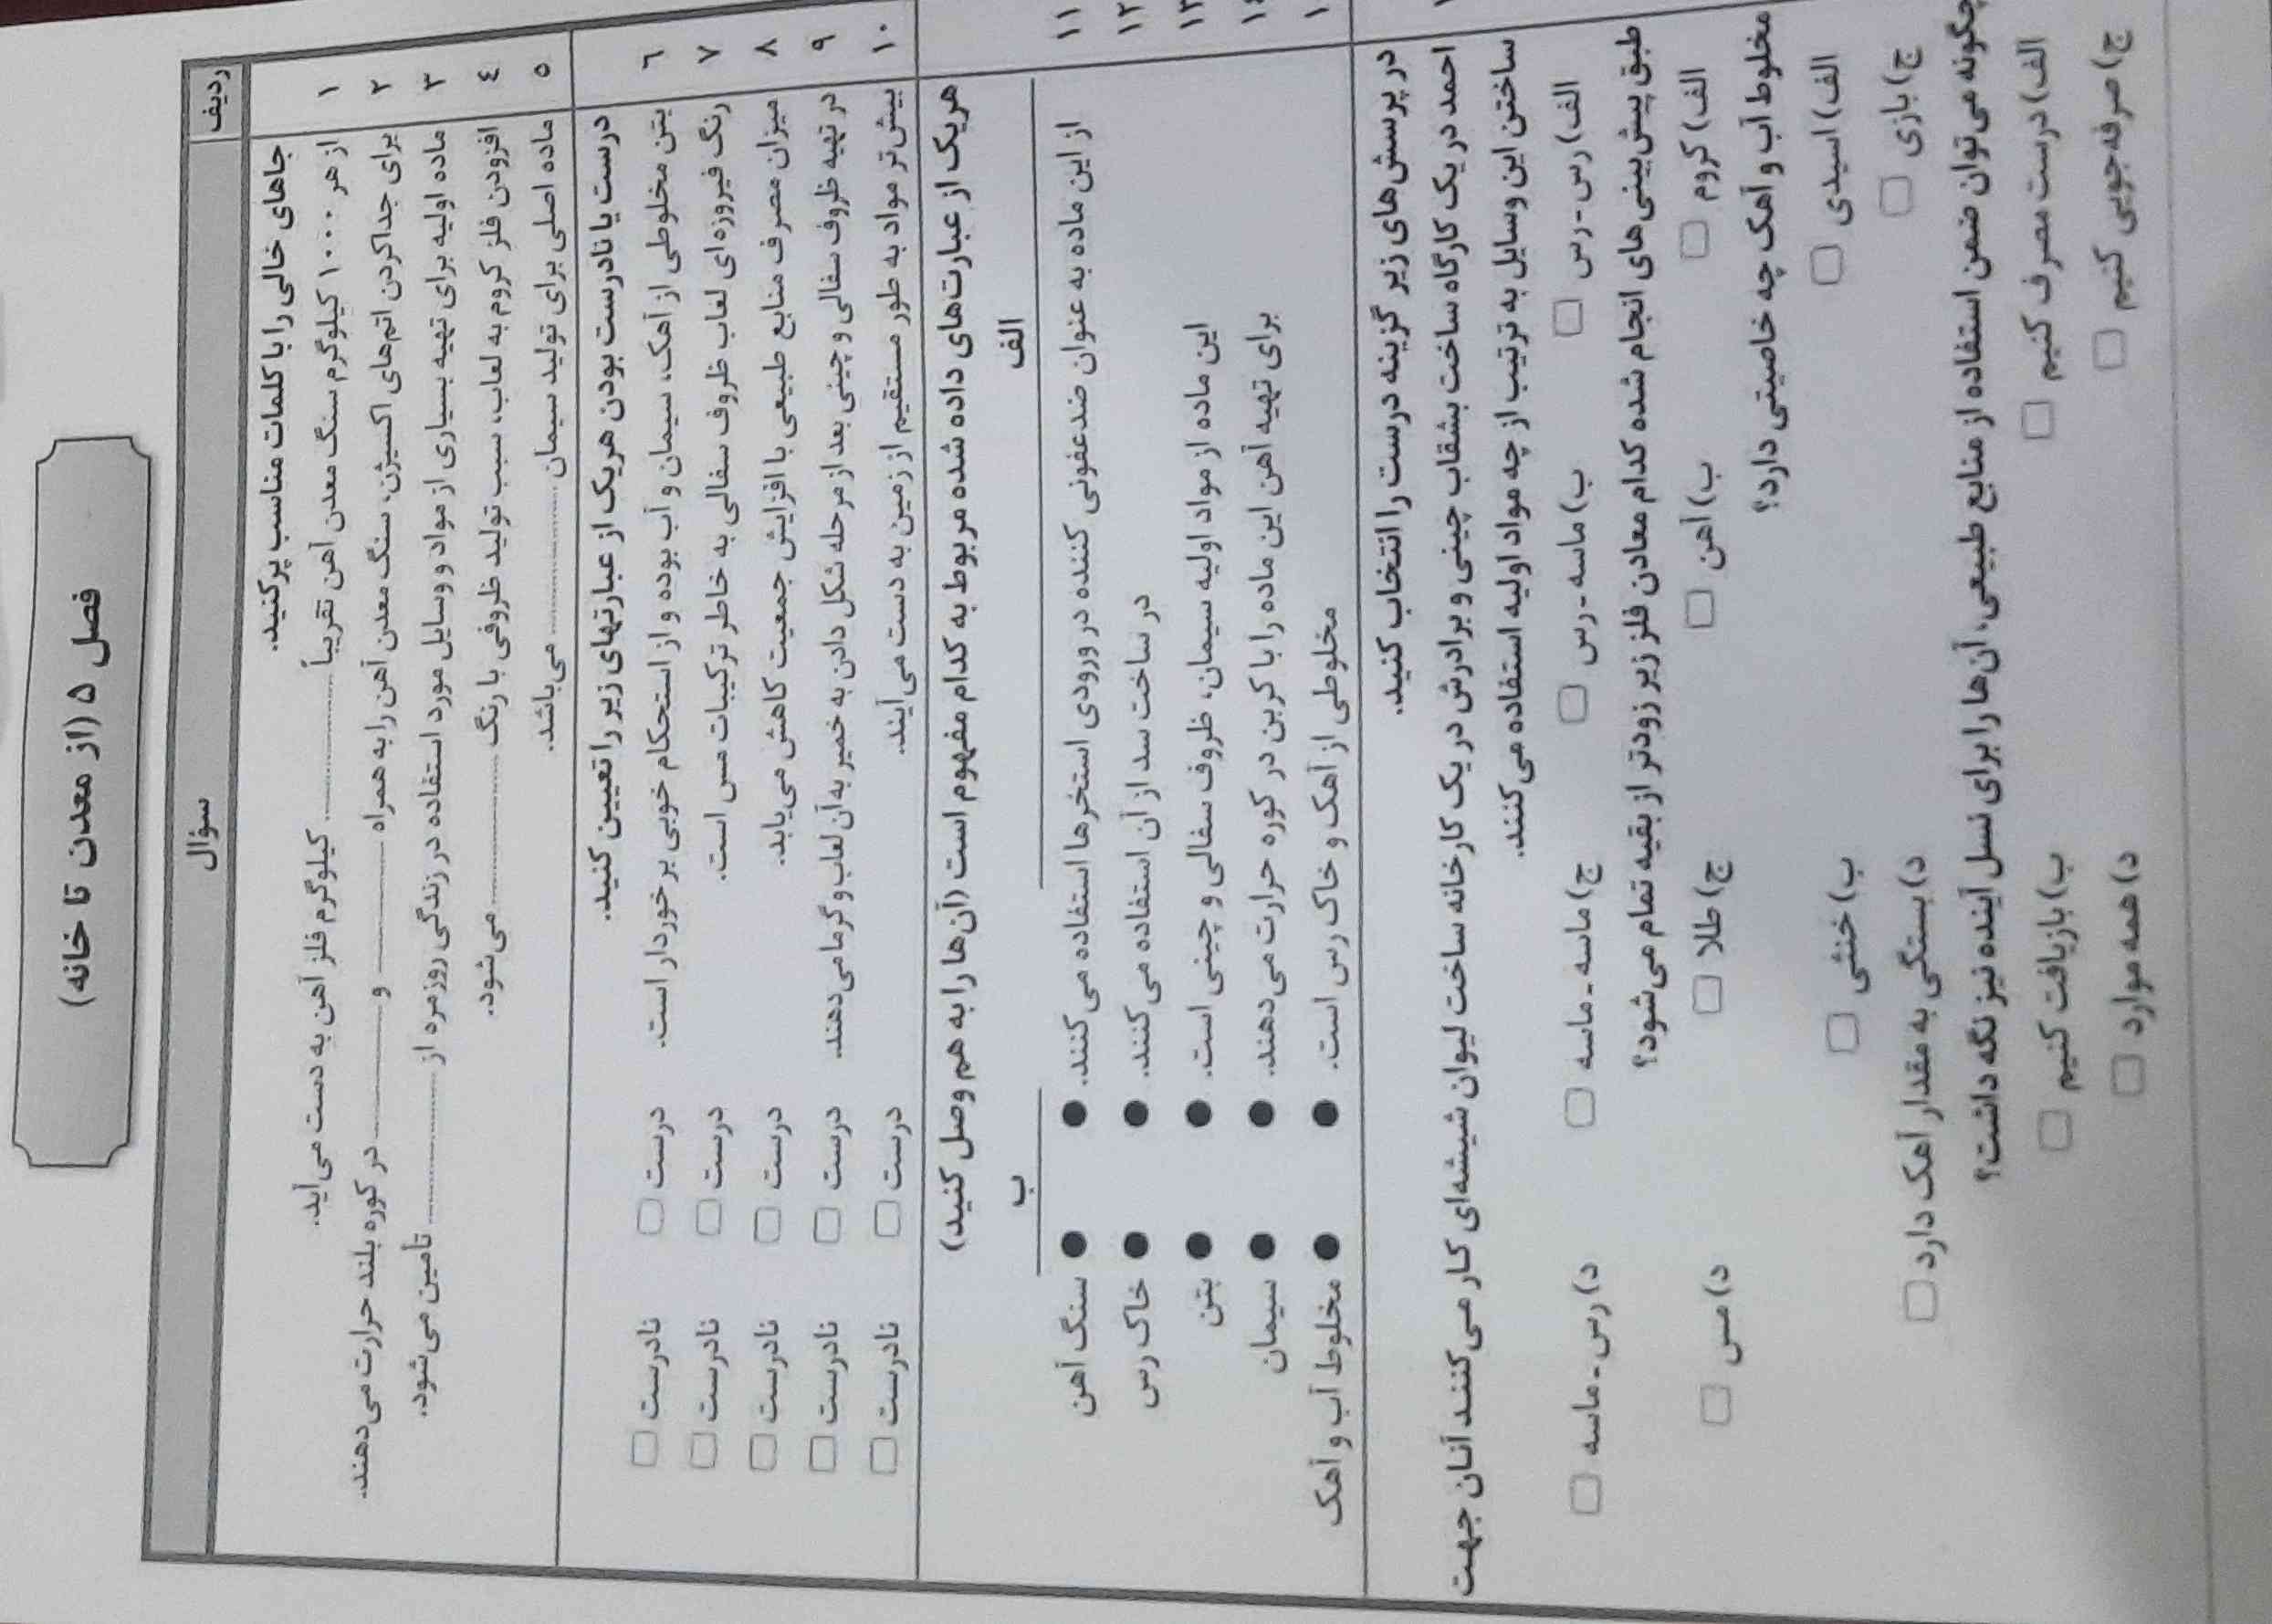 فصل ۵ (از معدن تا خانه)
ردیف سؤال
جاهای خالی را با کلمات مناسب پر کنید.
۱ از هر ۱۰۰۰ کیلوگرم سنگ معدن آهن تقریباً .................... کیلوگرم فلز آهن به دست می‌آید.
۲ برای جداکردن اتم‌های اکسیژن، سنگ معدن آهن را به همراه .................... و .................... در کوره بلند حرارت می‌دهند.
۳ ماده اولیه برای تهیه بسیاری از مواد و وسایل مورد استفاده در زندگی روزمره از .................... تأمین می‌شود.
۴ افزودن فلز کروم به لعاب، سبب تولید ظروفی با رنگ .................... می‌شود.
۵ ماده اصلی برای تولید سیمان .................... می‌باشد.
درست یا نادرست بودن هریک از عبارتهای زیر را تعیین کنید.
۶ بتن مخلوطی از آهک، سیمان و آب بوده و از استحکام خوبی برخوردار است. درست نادرست
۷ رنگ فیروزه‌ای لعاب ظروف سفالی به خاطر ترکیبات مس است. درست نادرست
۸ میزان مصرف منابع طبیعی با افزایش جمعیت کاهش می‌یابد. درست نادرست
۹ در تهیه ظروف سفالی و چینی بعد از مرحله شکل دادن به خمیر به آن لعاب و گرما می‌دهند. درست نادرست
۱۰ بیش‌تر مواد به طور مستقیم از زمین به دست می‌آیند. درست نادرست
هریک از عبارت‌های داده شده مربوط به کدام مفهوم است (آن‌ها را به هم وصل کنید)
الف ب
۱۱ از این ماده به عنوان ضدعفونی کننده در ورودی استخرها استفاده می‌کنند. ● ● سنگ آهن
۱۲ در ساخت سد از آن استفاده می‌کنند. ● ● خاک رس
۱۳ این ماده از مواد اولیه سیمان، ظروف سفالی و چینی است. ● ● بتن
۱۴ برای تهیه آهن این ماده را با کربن در کوره حرارت می‌دهند. ● ● سیمان
مخلوطی از آهک و خاک رس است. ● ● مخلوط آب و آهک
در پرسش‌های زیر گزینه درست را انتخاب کنید.
احمد در یک کارگاه ساخت بشقاب چینی و برادرش در یک کارخانه ساخت لیوان شیشه‌ای کار می‌کنند آنان جهت
ساختن این وسایل به ترتیب از چه مواد اولیه استفاده می‌کنند.
الف) رس - رس ب) ماسه - رس ج) ماسه - ماسه د) رس - ماسه
طبق پیش‌بینی‌های انجام شده کدام معادن فلز زیر زودتر از بقیه تمام می‌شود؟
الف) کروم ب) آهن ج) طلا د) مس
مخلوط آب و آهک چه خاصیتی دارد؟
الف) اسیدی ب) خنثی
ج) بازی د) بستگی به مقدار آهک دارد
چگونه می‌توان ضمن استفاده از منابع طبیعی، آن‌ها را برای نسل آینده نیز نگه داشت؟
الف) درست مصرف کنیم ب) بازیافت کنیم
ج) صرفه‌جویی کنیم د) همه موارد